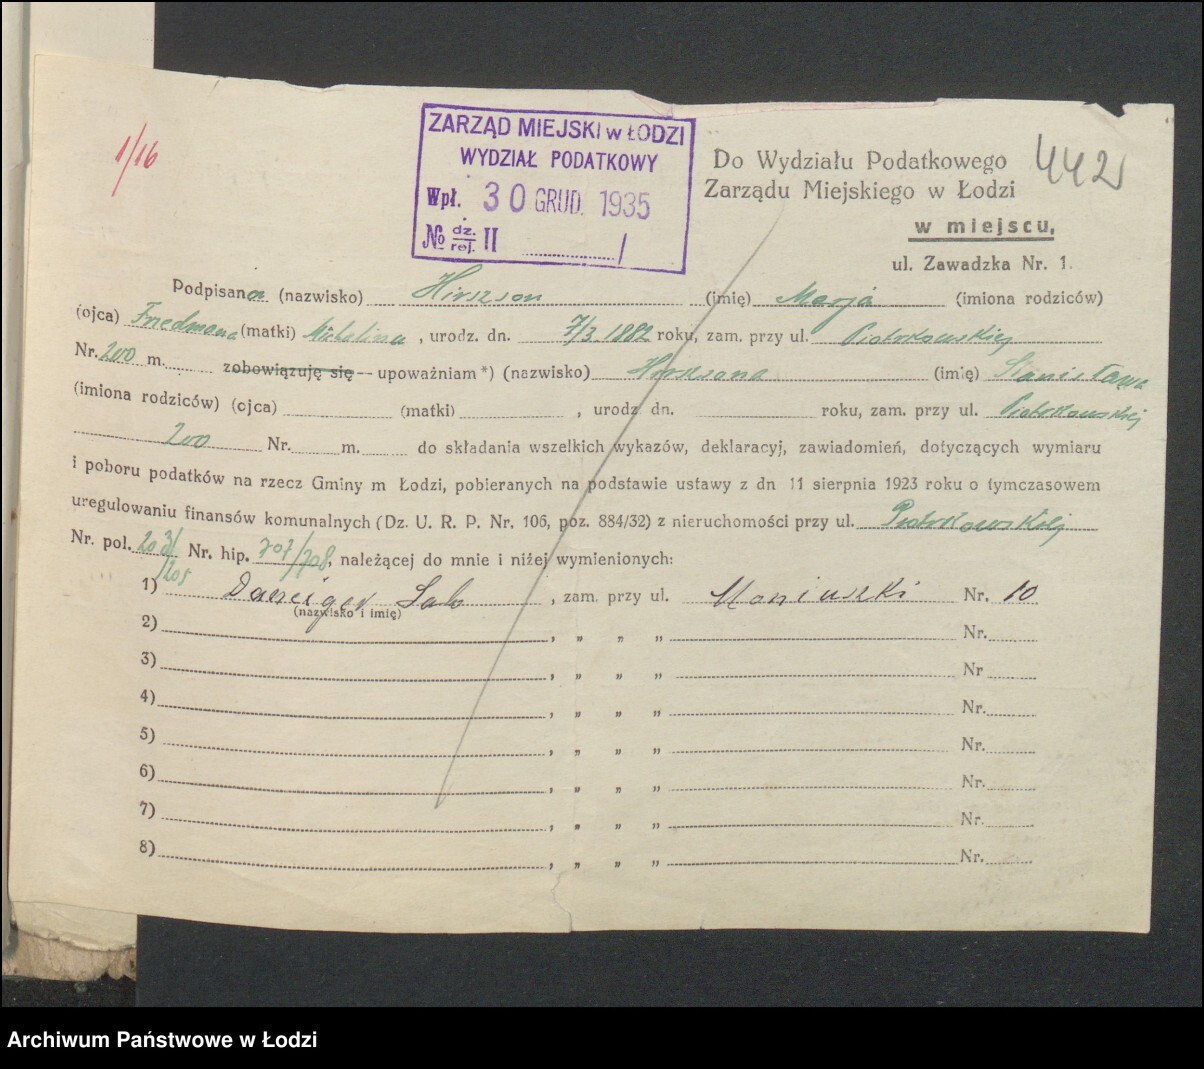 1/16
ZARZĄD MIEJSKI w ŁODZI
WYDZIAŁ PODATKOWY
Wpł. 30 GRUD. 1935
№ dz. rej. II ........../
442
Do Wydziału Podatkowego
Zarządu Miejskiego w Łodzi
w miejscu,
ul. Zawadzka Nr. 1.
Podpisana (nazwisko) Hirszson (imię) Marja (imiona rodziców)
(ojca) Friedmana (matki) Michalina, urodz. dn. 7/3 1882 roku, zam. przy ul. Piotrkowskiej
Nr. 200 m. zobowiązuję się — upoważniam *) (nazwisko) Hirszsona (imię) Stanisława
(imiona rodziców) (ojca) (matki) , urodz. dn. roku, zam. przy ul. Piotrkowskiej
200 Nr. m. do składania wszelkich wykazów, deklaracyj, zawiadomień, dotyczących wymiaru
i poboru podatków na rzecz Gminy m Łodzi, pobieranych na podstawie ustawy z dn 11 sierpnia 1923 roku o tymczasowem
uregulowaniu finansów komunalnych (Dz. U. R. P. Nr. 106, poz. 884/32) z nieruchomości przy ul. Piotrkowskiej
Nr. pol. 203/205 Nr. hip. 707/708, należącej do mnie i niżej wymienionych:
1) Danciger Salo , zam. przy ul. Moniuszki Nr. 10
(nazwisko i imię)
2) , „ „ „ Nr.
3) , „ „ „ Nr
4) , „ „ „ Nr.
5) , „ „ „ Nr.
6) , „ „ „ Nr.
7) , „ „ „ Nr.
8) , „ „ „ Nr.
Archiwum Państwowe w Łodzi